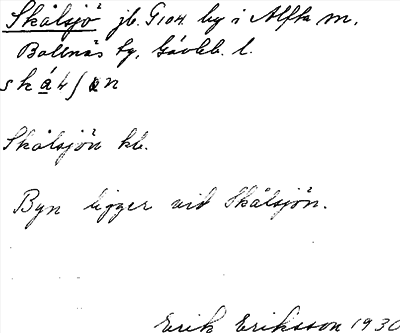 Skålsjö jb. G104 by i Alfta sn.
Bollnäs tg, Gävleb. l.
Skålsjön kb.
Byn ligger vid Skålsjön.
Erik Eriksson 1930